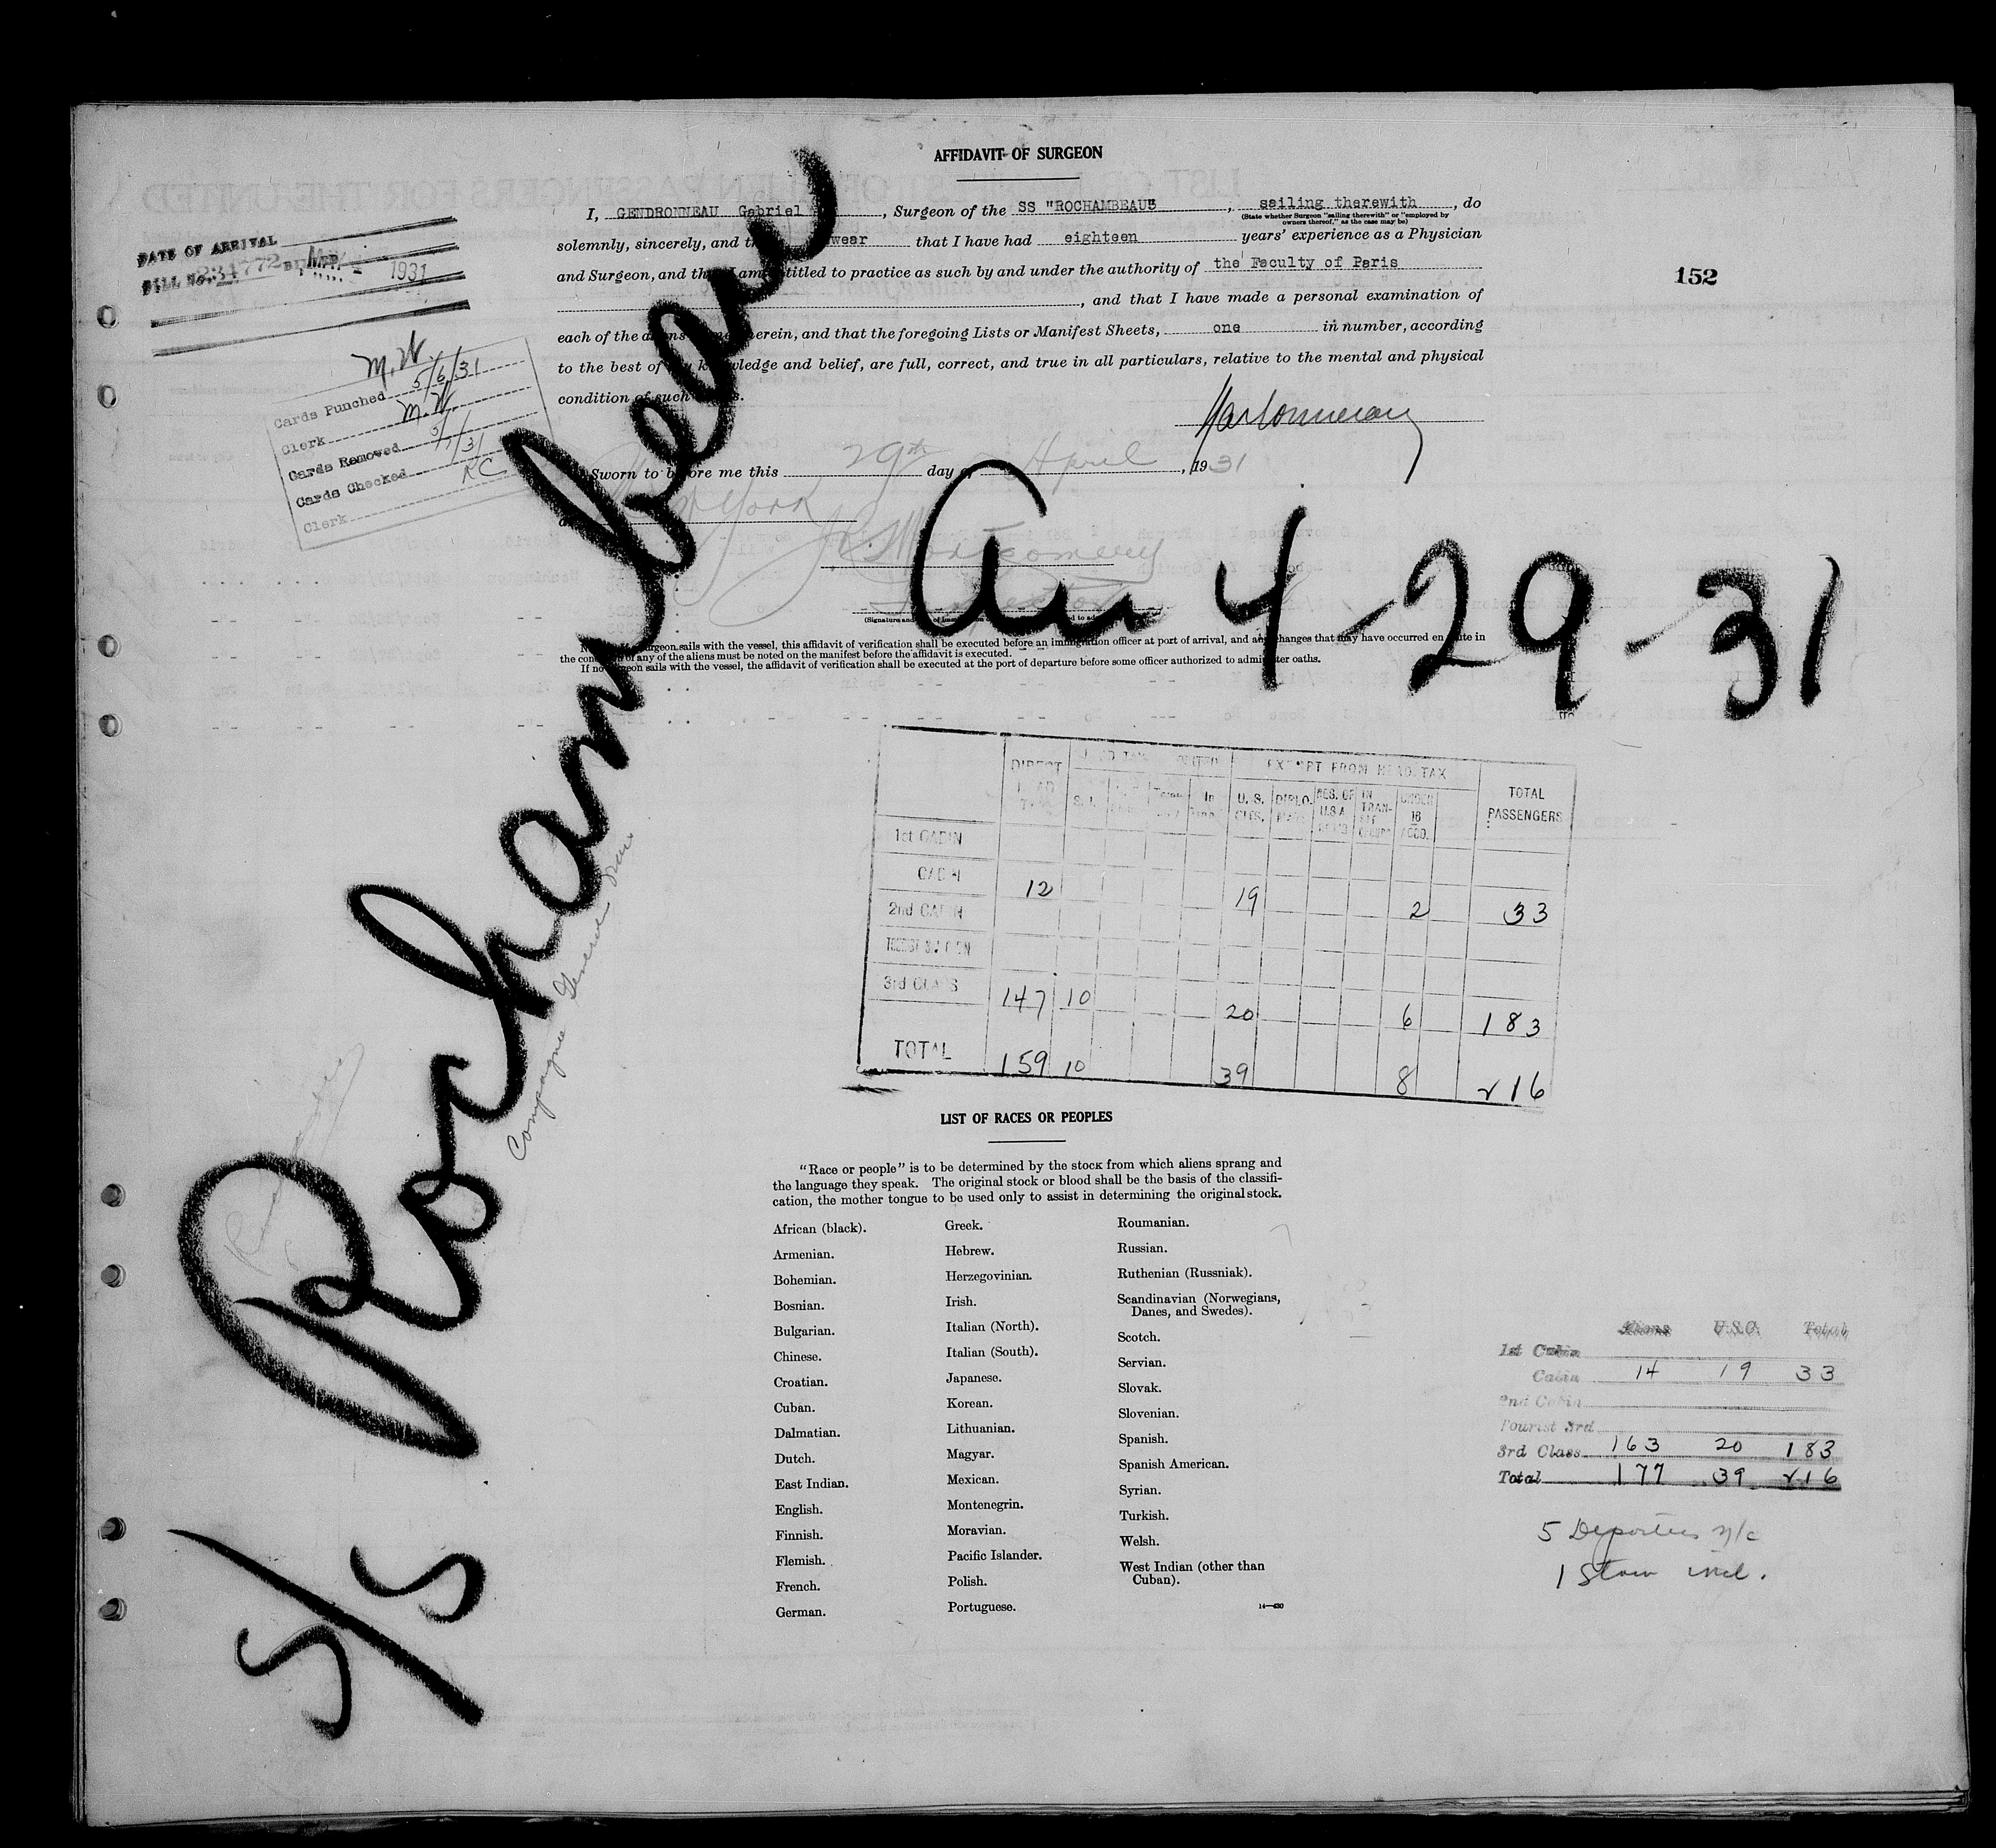 AFFIDAVIT OF SURGEON
I, GENDRONNEAU Gabriel, Surgeon of the SS "ROCHAMBEAU", sailing therewith, do
(State whether Surgeon "sailing therewith" or "employed by
owners thereof," as the case may be)
solemnly, sincerely, and swear that I have had eighteen years' experience as a Physician
and Surgeon, and that I am entitled to practice as such by and under the authority of the Faculty of Paris
, and that I have made a personal examination of
each of the aliens named herein, and that the foregoing Lists or Manifest Sheets, one in number, according
to the best of my knowledge and belief, are full, correct, and true in all particulars, relative to the mental and physical
condition of such aliens.
Sworn to before me this 29th day of April, 1931
at New York
Montgomery
Inspector
If a surgeon sails with the vessel, this affidavit of verification shall be executed before an immigration officer at port of arrival, and any changes that may have occurred en route in
the condition of any of the aliens must be noted on the manifest before the affidavit is executed.
If no surgeon sails with the vessel, the affidavit of verification shall be executed at the port of departure before some officer authorized to administer oaths.
152
DATE OF ARRIVAL
BILL No. 1931
M.W.
Cards Punched 5/6/31
Clerk M.W.
Cards Removed 5/7/31
Cards Checked KC
Clerk
S/S Rochambeau
Arr 4-29-31
Compagnie Generale
DIRECT HEAD TAX
EXEMPT FROM HEAD TAX
TOTAL PASSENGERS
S.I. U.S. CITS. DIPLO. RES. OF U.S.A. IN TRAN- UNDER 16 ACCD.
1st CABIN
CABIN 12 19 2 33
2nd CABIN
TOURIST 3rd CABIN
3rd CLASS 147 10 20 6 183
TOTAL 159 10 39 8 216
LIST OF RACES OR PEOPLES
"Race or people" is to be determined by the stock from which aliens sprang and
the language they speak. The original stock or blood shall be the basis of the classifi-
cation, the mother tongue to be used only to assist in determining the original stock.
African (black).
Armenian.
Bohemian.
Bosnian.
Bulgarian.
Chinese.
Croatian.
Cuban.
Dalmatian.
Dutch.
East Indian.
English.
Finnish.
Flemish.
French.
German.
Greek.
Hebrew.
Herzegovinian.
Irish.
Italian (North).
Italian (South).
Japanese.
Korean.
Lithuanian.
Magyar.
Mexican.
Montenegrin.
Moravian.
Pacific Islander.
Polish.
Portuguese.
Roumanian.
Russian.
Ruthenian (Russniak).
Scandinavian (Norwegians,
Danes, and Swedes).
Scotch.
Servian.
Slovak.
Slovenian.
Spanish.
Spanish American.
Syrian.
Turkish.
Welsh.
West Indian (other than
Cuban).
14—430
Aliens U.S.C. Total
1st Cabin
Cabin 14 19 33
2nd Cabin
Tourist 3rd
3rd Class 163 20 183
Total 177 39 216
5 Deportees n/c
1 Stow incl.